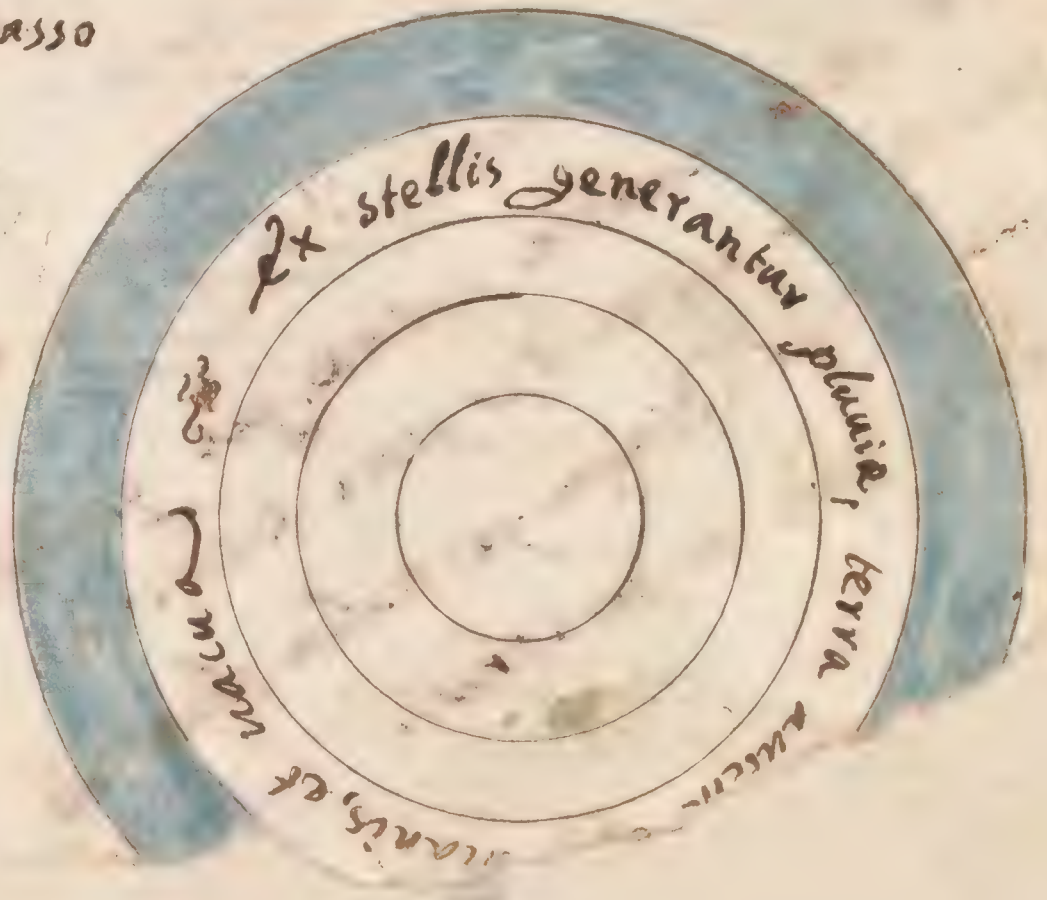 asso
Ex stellis generantur pluuiæ, terra
inanis, et uacua